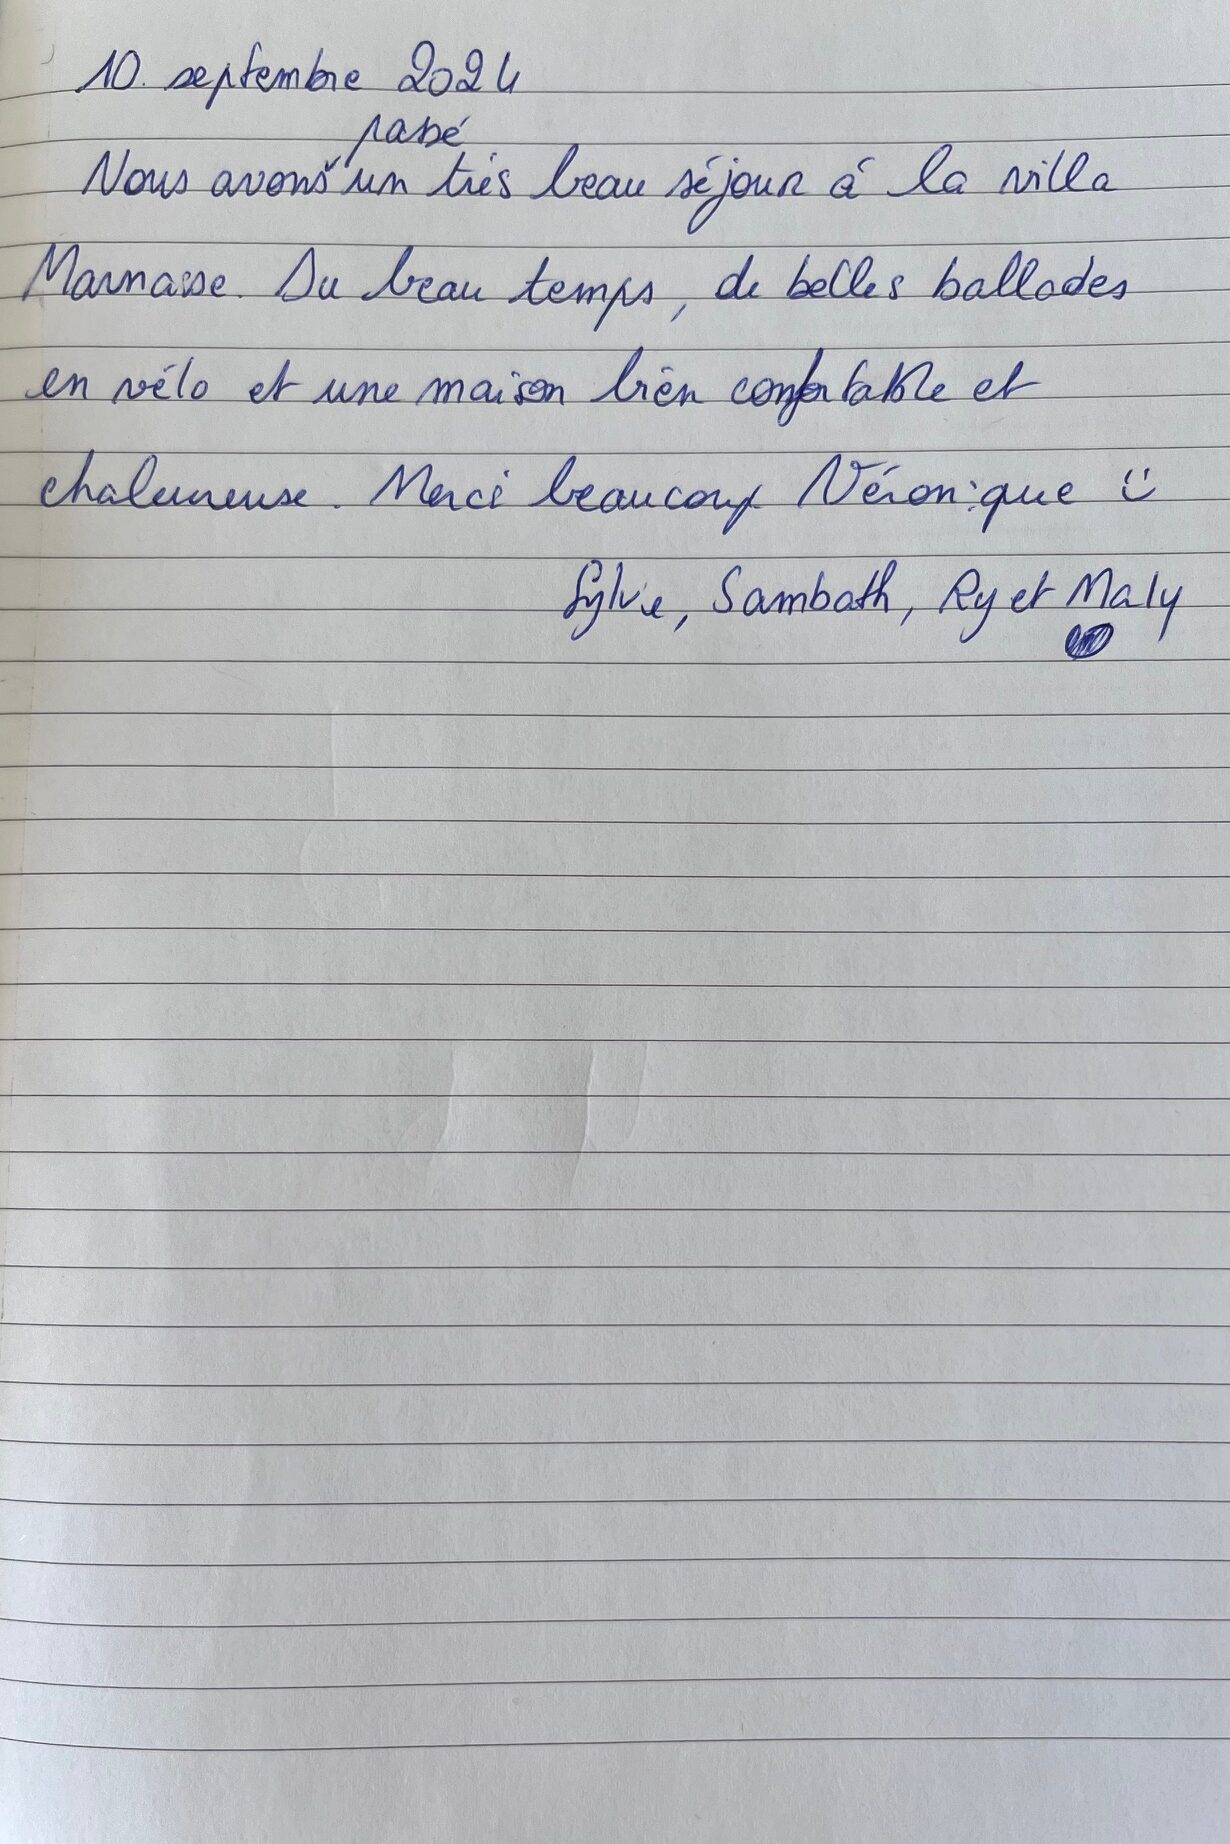 10. septembre 2024
passé
Nous avons un trés beau séjour á la villa
Marnaise. Du beau temps, de belles ballades
en vélo et une maison bien confortable et
chaleureuse. Merci beaucoup Véronique :)
Sylvie, Sambath, Ry et Maly